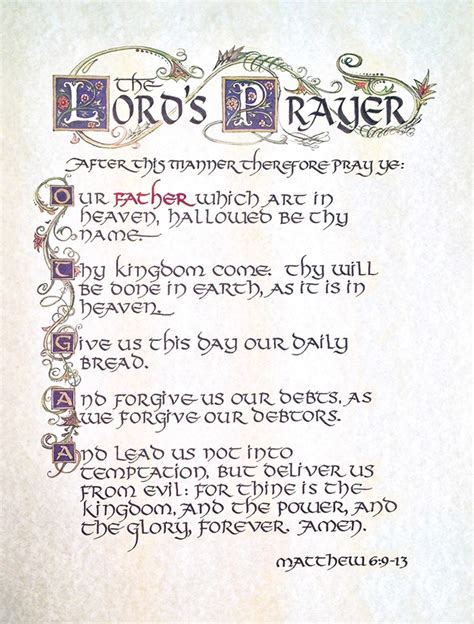 the
Lord's Prayer
After this manner therefore pray ye:
Our Father which art in
heaven, hallowed be thy
name.
Thy kingdom come. Thy will
be done in earth, as it is in
heaven.
Give us this day our daily
bread.
And forgive us our debts, as
we forgive our debtors.
And lead us not into
temptation, but deliver us
from evil: for thine is the
kingdom, and the power, and
the glory, forever. Amen.
Matthew 6:9-13